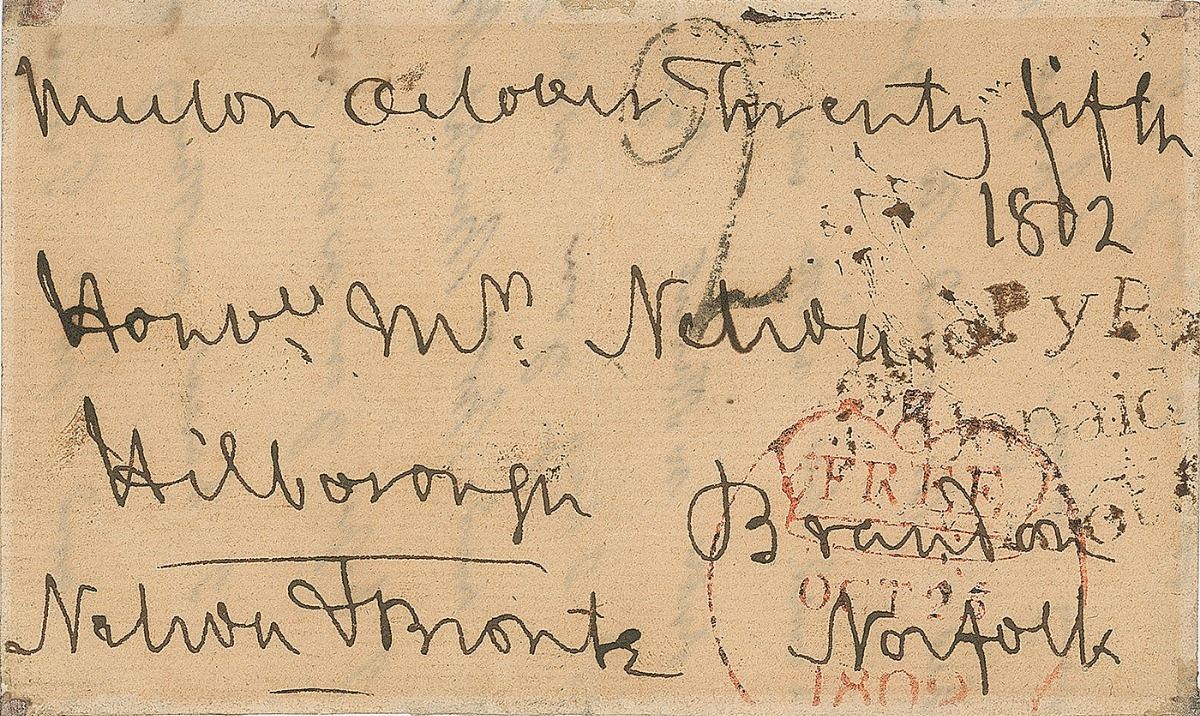 Merton October Twenty fifth
1802
Honble: Mrs: Nelson
PyP
Unpaid
Hilborough
FREE
Brandon
OCT 25
Nelson & Bronte
Norfolk
1802